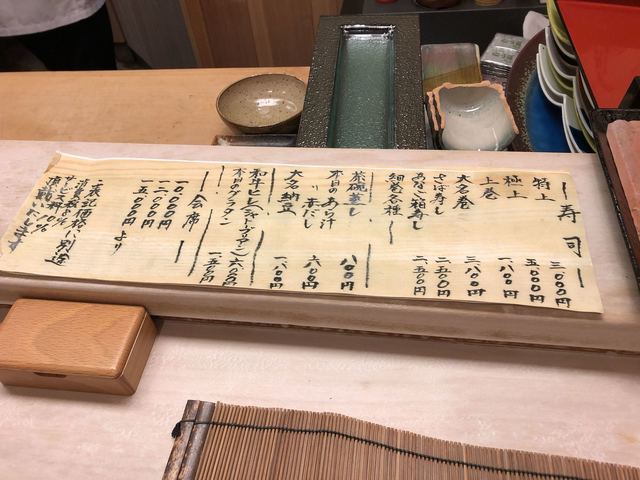 寿司
特上 三、〇〇〇円
極上 五、〇〇〇円
上巻 一、八〇〇円
大名巻 三、八〇〇円
さば寿し 二、五〇〇円
あなご箱寿し 二、五〇〇円
細巻各種
茶碗蒸し 八〇〇円
本日のあら汁
〃 赤だし 六〇〇円
大名納豆 一、八〇〇円
和牛ヒレ
六、〇〇〇円
本日のグラタン 一、五〇〇円
会席
一〇、〇〇〇円
一二、〇〇〇円
一五、〇〇〇円 より
・表記価格に別途
消費税8%
サービス料10%
頂戴いたします